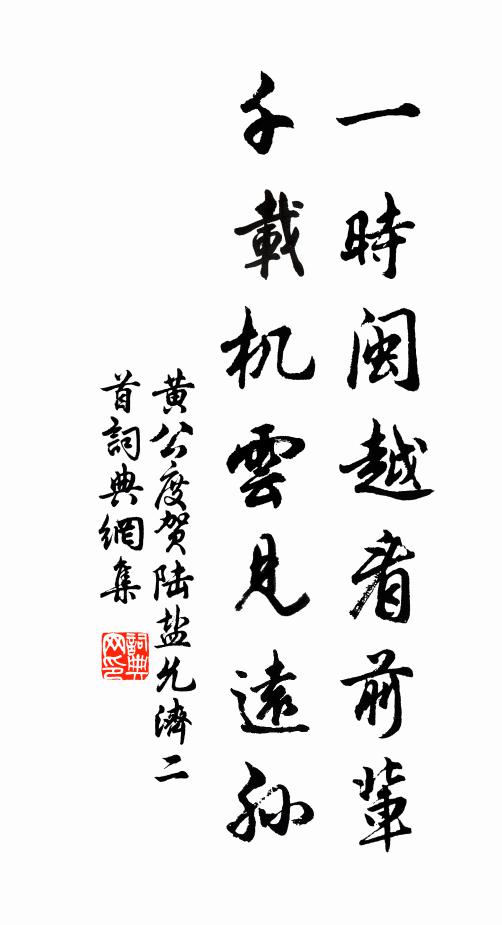 一時閩越看前輩
千載机雲見遠孙
黄公度贺陆盐允濟二
首詞典網集
詞典网印